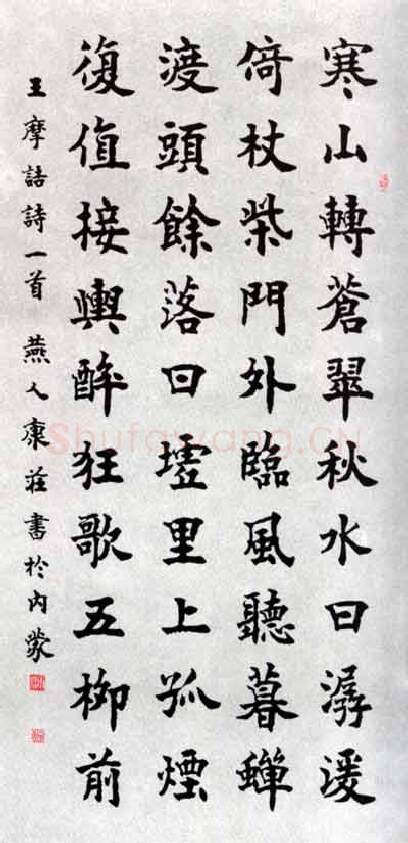 寒山轉蒼翠秋水日潺湲
倚杖柴門外臨風聽暮蟬
渡頭餘落日墟里上孤煙
復值接輿醉狂歌五柳前
王摩詰詩一首 燕人康莊書於內蒙
Shufawang.Cn